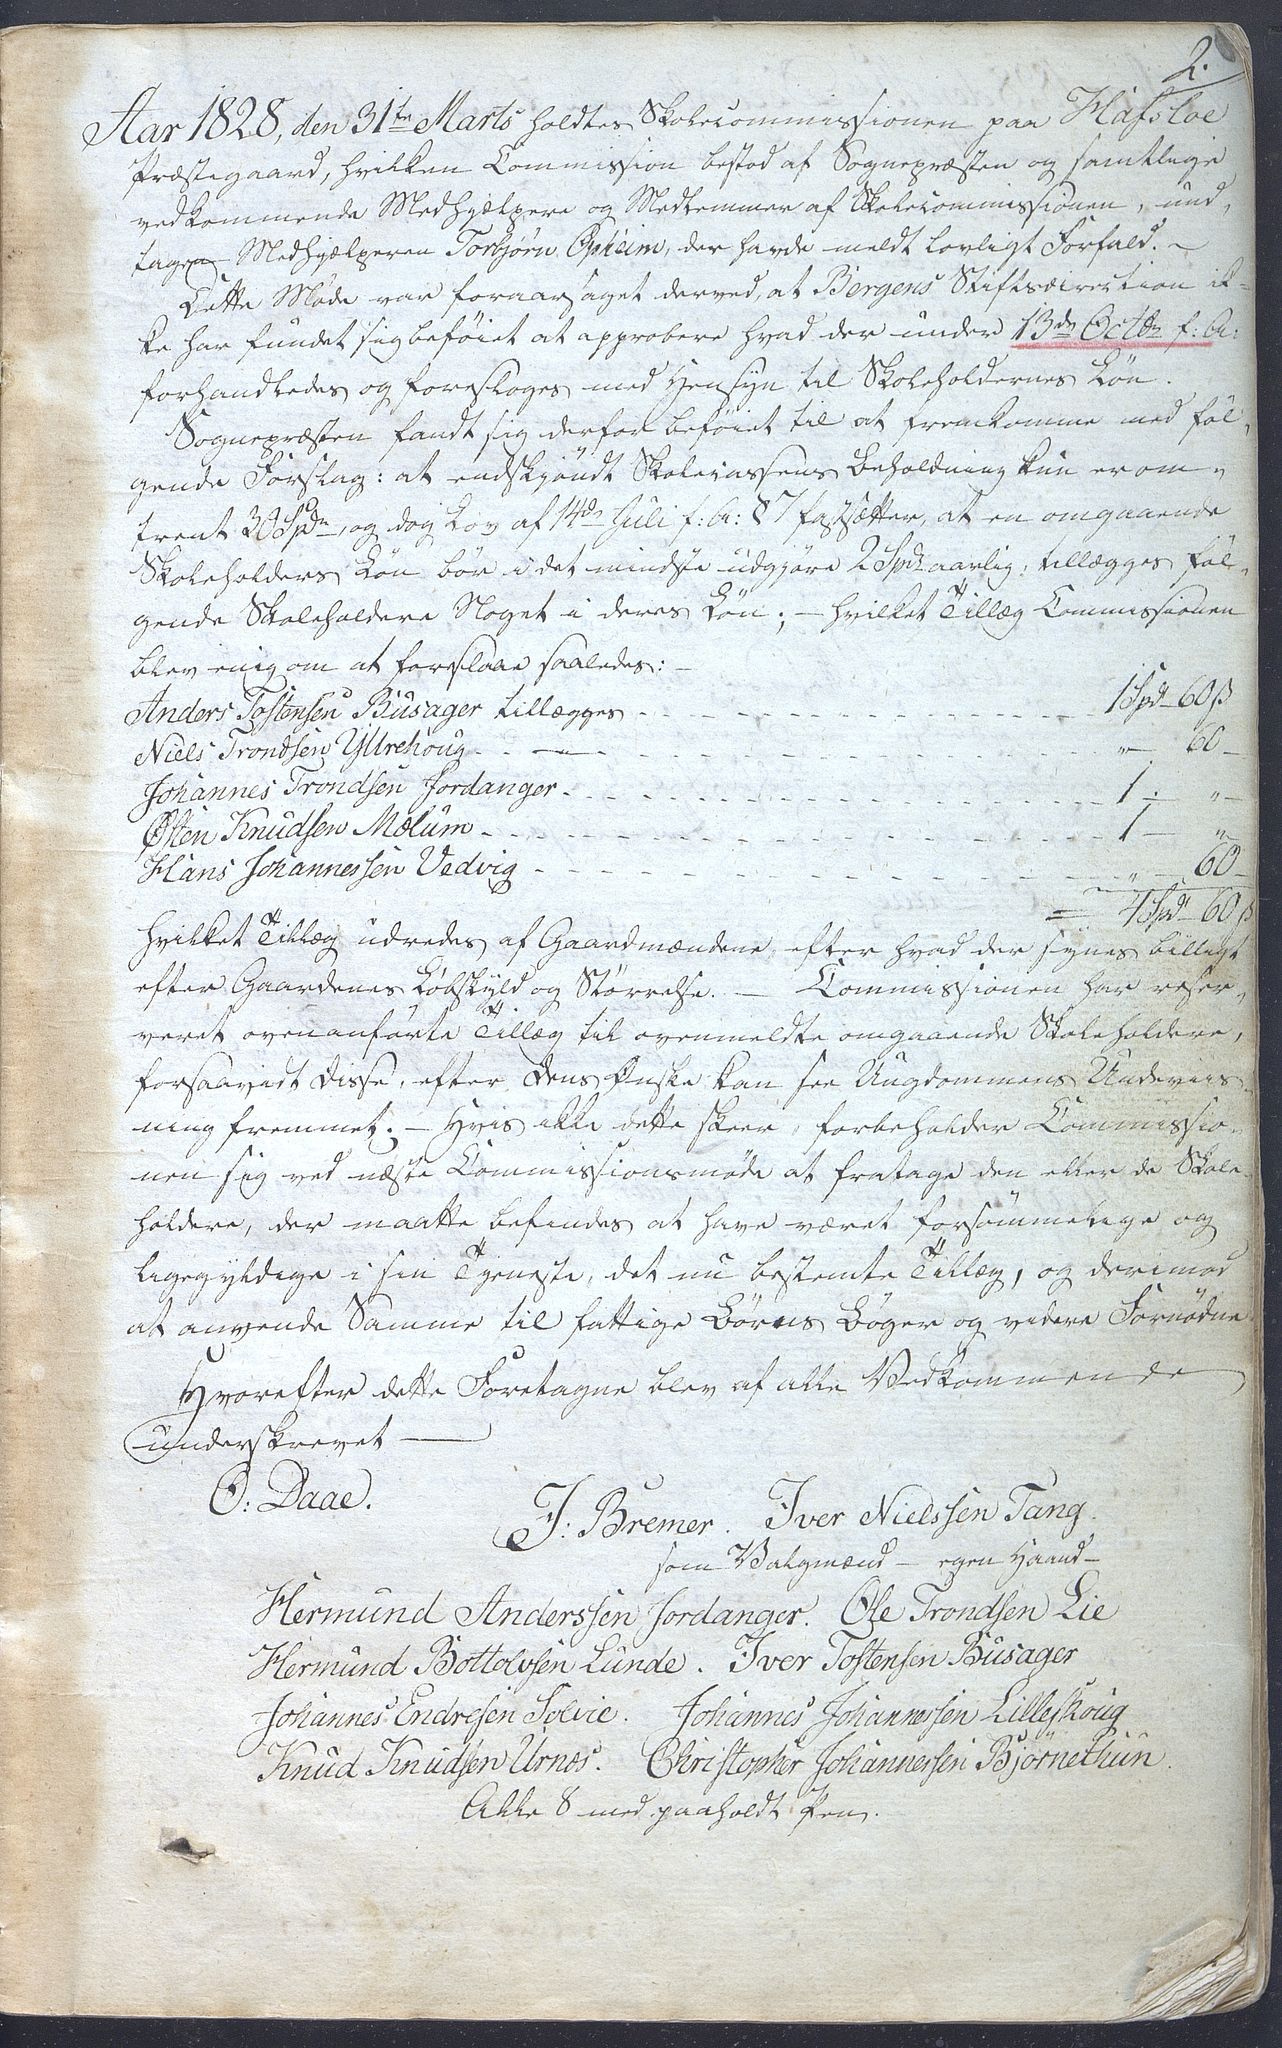 2.
Aar 1828, den 31te Marts holdtes Skolecommissionen paa Hafsloe
Præstegaard, hvilken Commission bestod af Sognepræsten og samtlige
vedkommende Medhjælpere og Medlemmer af Skolecommissionen, und,
tagen Medhjælperen Torbjørn Opheim, der havde meldt lovligt Forfald. –
Dette Møde var foraarsaget derved, at Bergens Stiftsdirection ik-
ke har fundet sig beføiet at approbere hvad der under 13de Octbr f: A:
forhandledes og foresloges med Hensyn til Skoleholdernes Løn.
Sognepræsten fandt sig derfor beføiet til at fremkomme med föl,
gende Forslag: at endskjöndt Skolecassens Beholdning kun er om,
trent 30 Spdr, og dog Lov af 14de Juli f: A: § 7 fastsætter, at en omgaaende
Skoleholders Løn bör i det mindste udgjöre 2 Spdr aarlig, tillægges föl,
gende Skoleholdere Noget i deres Løn; – hvilket Tillæg Commissionen
blev enig om at foreslaae saaledes: –
Anders Tostensen Busager tillægges - - - 1 Spd – 60 ß
Niels Trondsen Yttrehoug - – - - - „ – 60 –
Johannes Trondsen Jordanger - - - - 1 – „ –
Østen Knudsen Mælum - - - - 1 – „
Hans Johannessen Vedvig - - - - „ – 60 –
= 4 Spdr – 60 ß
hvilket Tillæg udredes af Gaardmændene, efter hvad der synes billigt
efter Gaardenes Løbskyld og Störrelse. – Commissionen har reser,
veret ovenanførte Tillæg til ovenmeldte omgaaende Skoleholdere,
forsaavidt disse, efter dens Ønske kan see Ungdommens Underviis,
ning fremmet. – Hvis ikke dette skeer, forbeholder Commissio,
nen sig ved næste Commissionsmøde at fratage den eller de Skole,
holdere, der maatte befindes at have været forsömmelige og
ligegyldige i sin Tjeneste, det nu bestemte Tillæg, og derimod
at anvende Samme til fattige Börns Bøger og videre Fornødne
Hvorefter dette Foretagne blev af alle Vedkommende
underskrevet –
O: Daae.
J: Bremer. Iver Nielssen Tang.
som Valgmænd – egen Haand –
Hermund Anderssen Jordanger. Ole Trondsen Lie
Hermund Bottolvsen Lunde. Iver Tostensen Busager
Johannes Endresen Solvie. Johannes Johannessen Lilleskoug
Knud Knudsen Urnæs. Christopher Johannessen Bjørnethun.
Alle 8 med paaholdt Pen.